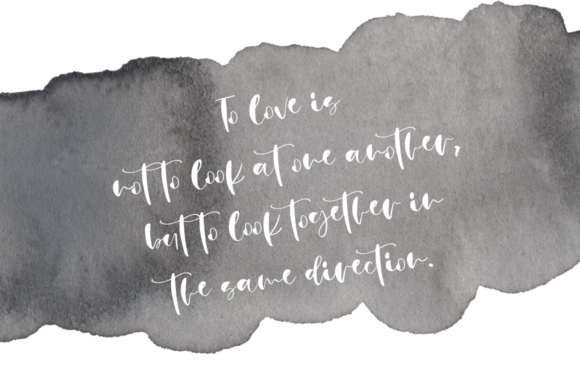 To love is
not to look at one another,
but to look together in
the same direction.